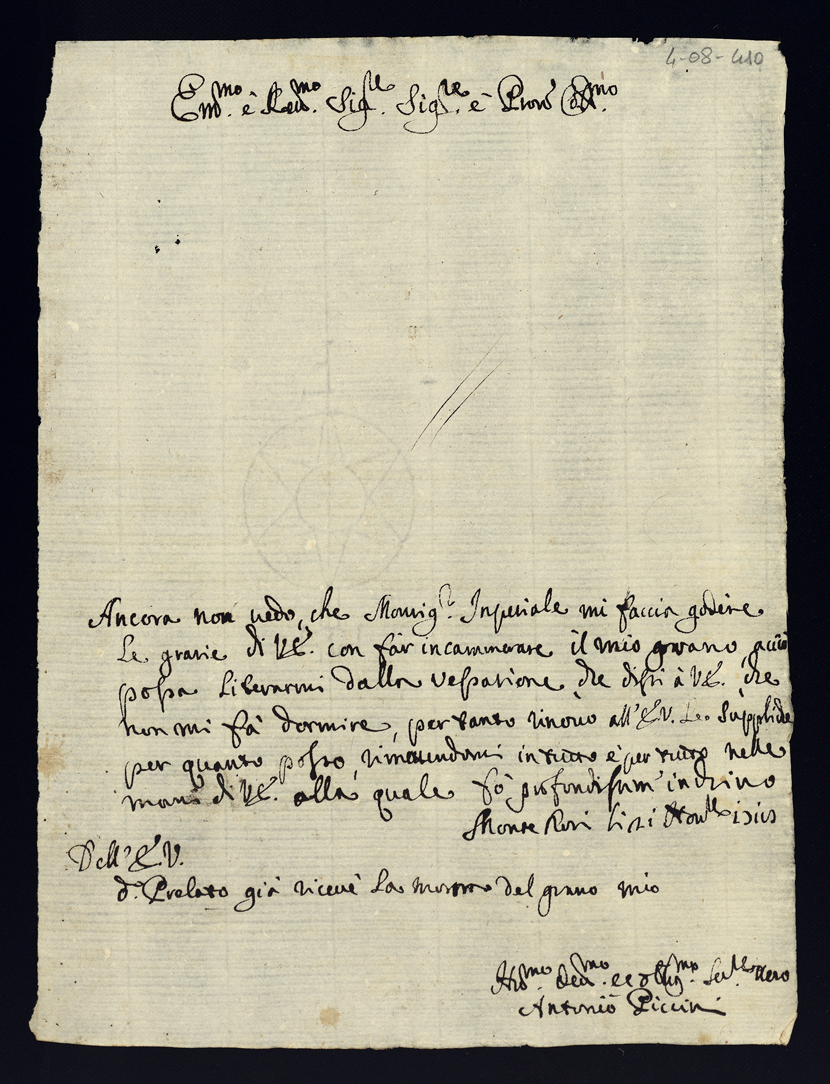 4-08-410
Em.mo è Reu.mo Sig.re Sig.re è Pron
Ancora non uedo, che Monsig.r Inperiale mi faccia godere
le gratie di V.E. con far incammerare il mio grano, acciò
possa liberarmi dalla vessatione, che dissi à V.E. che
non mi fà dormire, per tanto rinouo all'E.V. le suppliche
per quanto posso, rimettendomi in tutto è per tutto nelle
mani di V.E. alla quale fò profondissim' inchino
Monte Rosi li
Dell'E.V.
d.o Prelato già riceuè la mostra del grano mio
Hu.mo Deu.mo ed Oblig.mo Ser.re Vero
Antonio Piccini